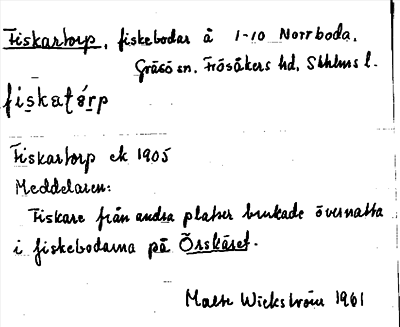 Fiskartorp, fiskebodar å 1-10 Norrboda,
Gräsö sn, Frösåkers hd, Sthlms l.
fiskatårp
Fiskartorp ek 1905
Meddelaren:
Fiskare från andra platser brukade övernatta
i fiskebodarna på Örskäret.
Malte Wickström 1961